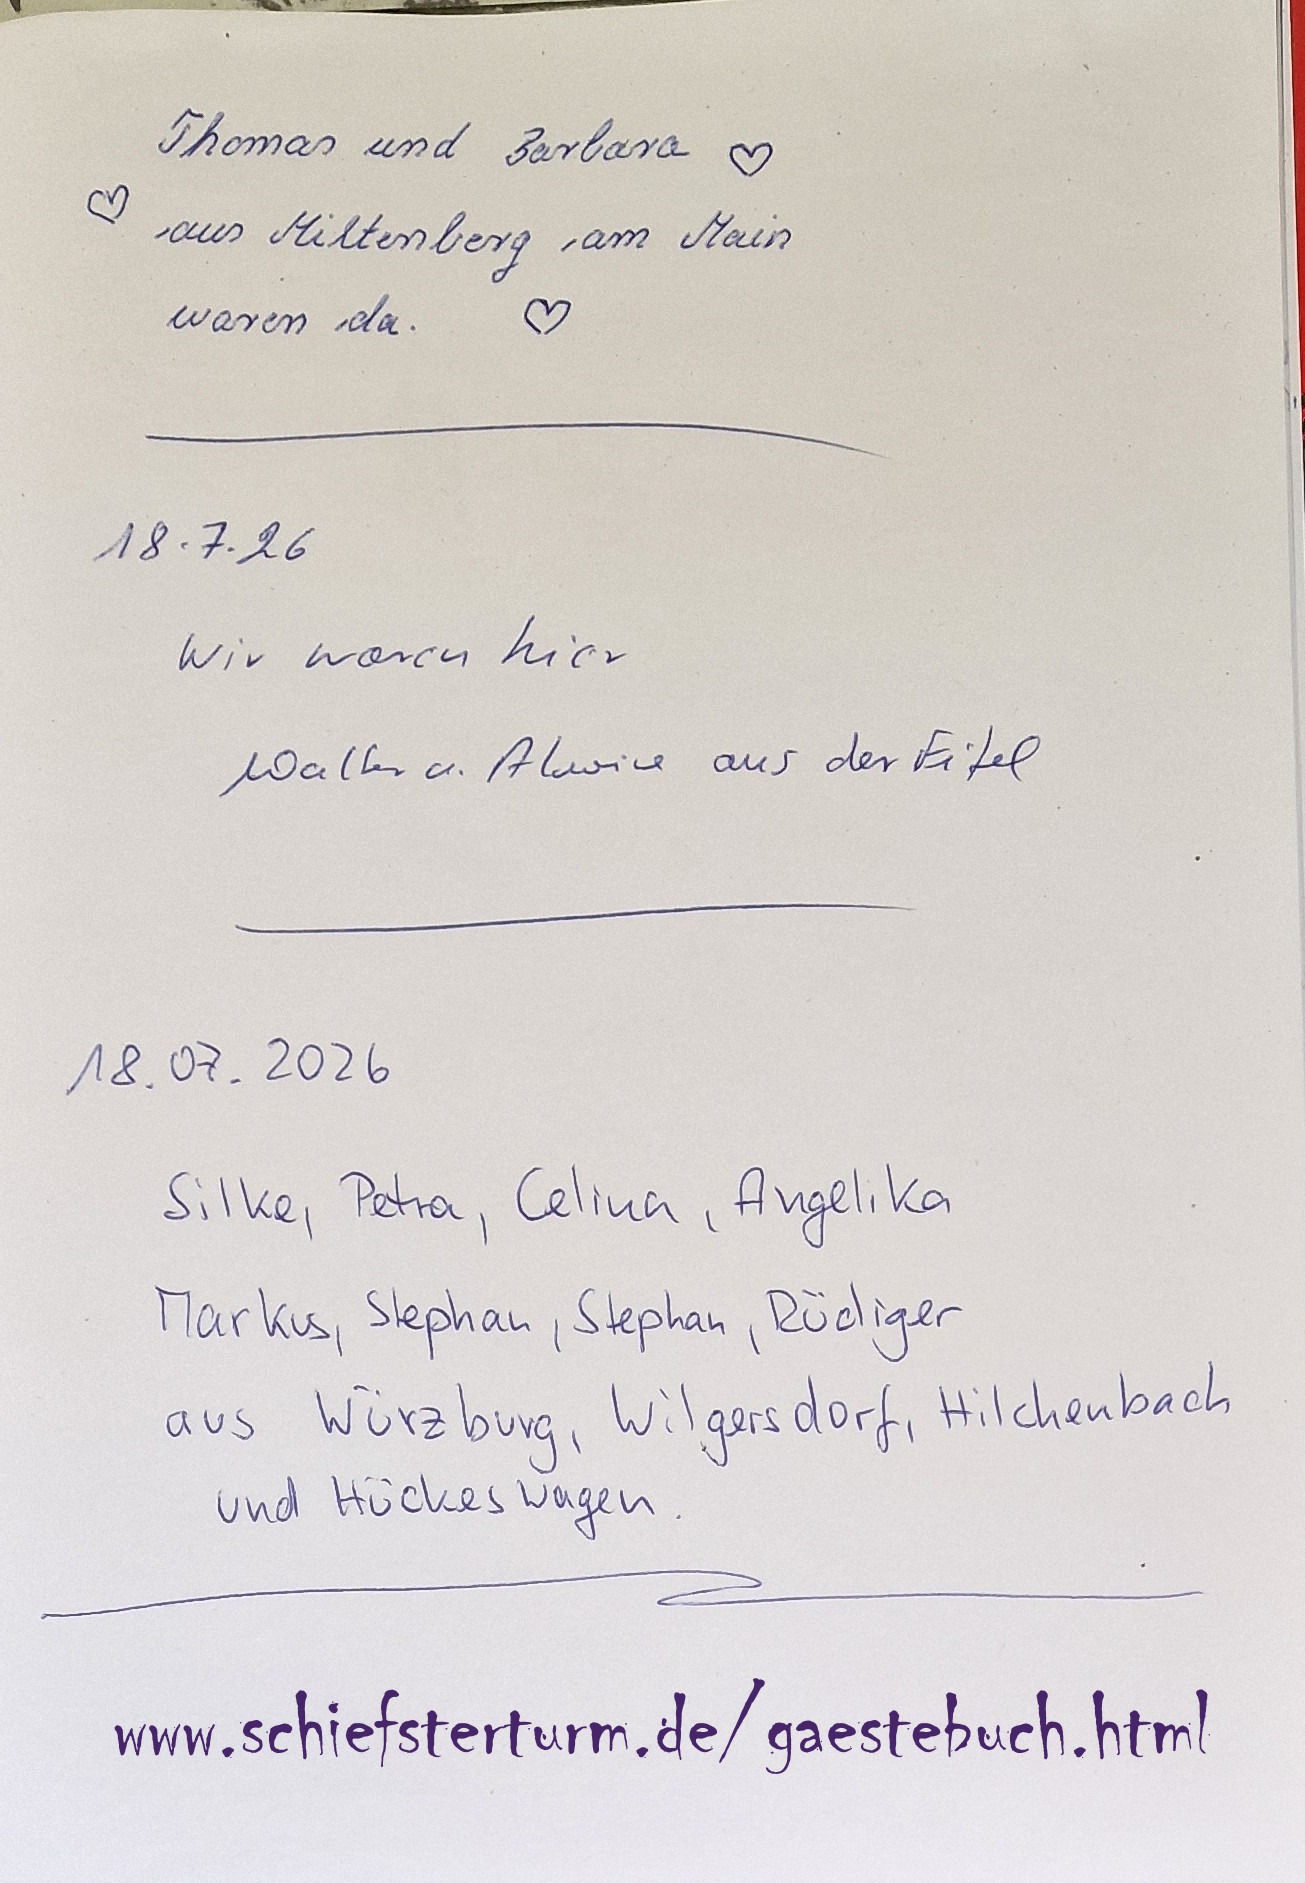 Thomas und Barbara ♡
♡ aus Miltenberg am Main
waren da. ♡
18.7.26
Wir waren hier
Walter u. Alwine aus der Eifel
18.07.2026
Silke, Petra, Celina, Angelika
Markus, Stephan, Stephan, Rüdiger
aus Würzburg, Wilgersdorf, Hilchenbach
und Hückeswagen.
www.schiefsterturm.de/gaestebuch.html